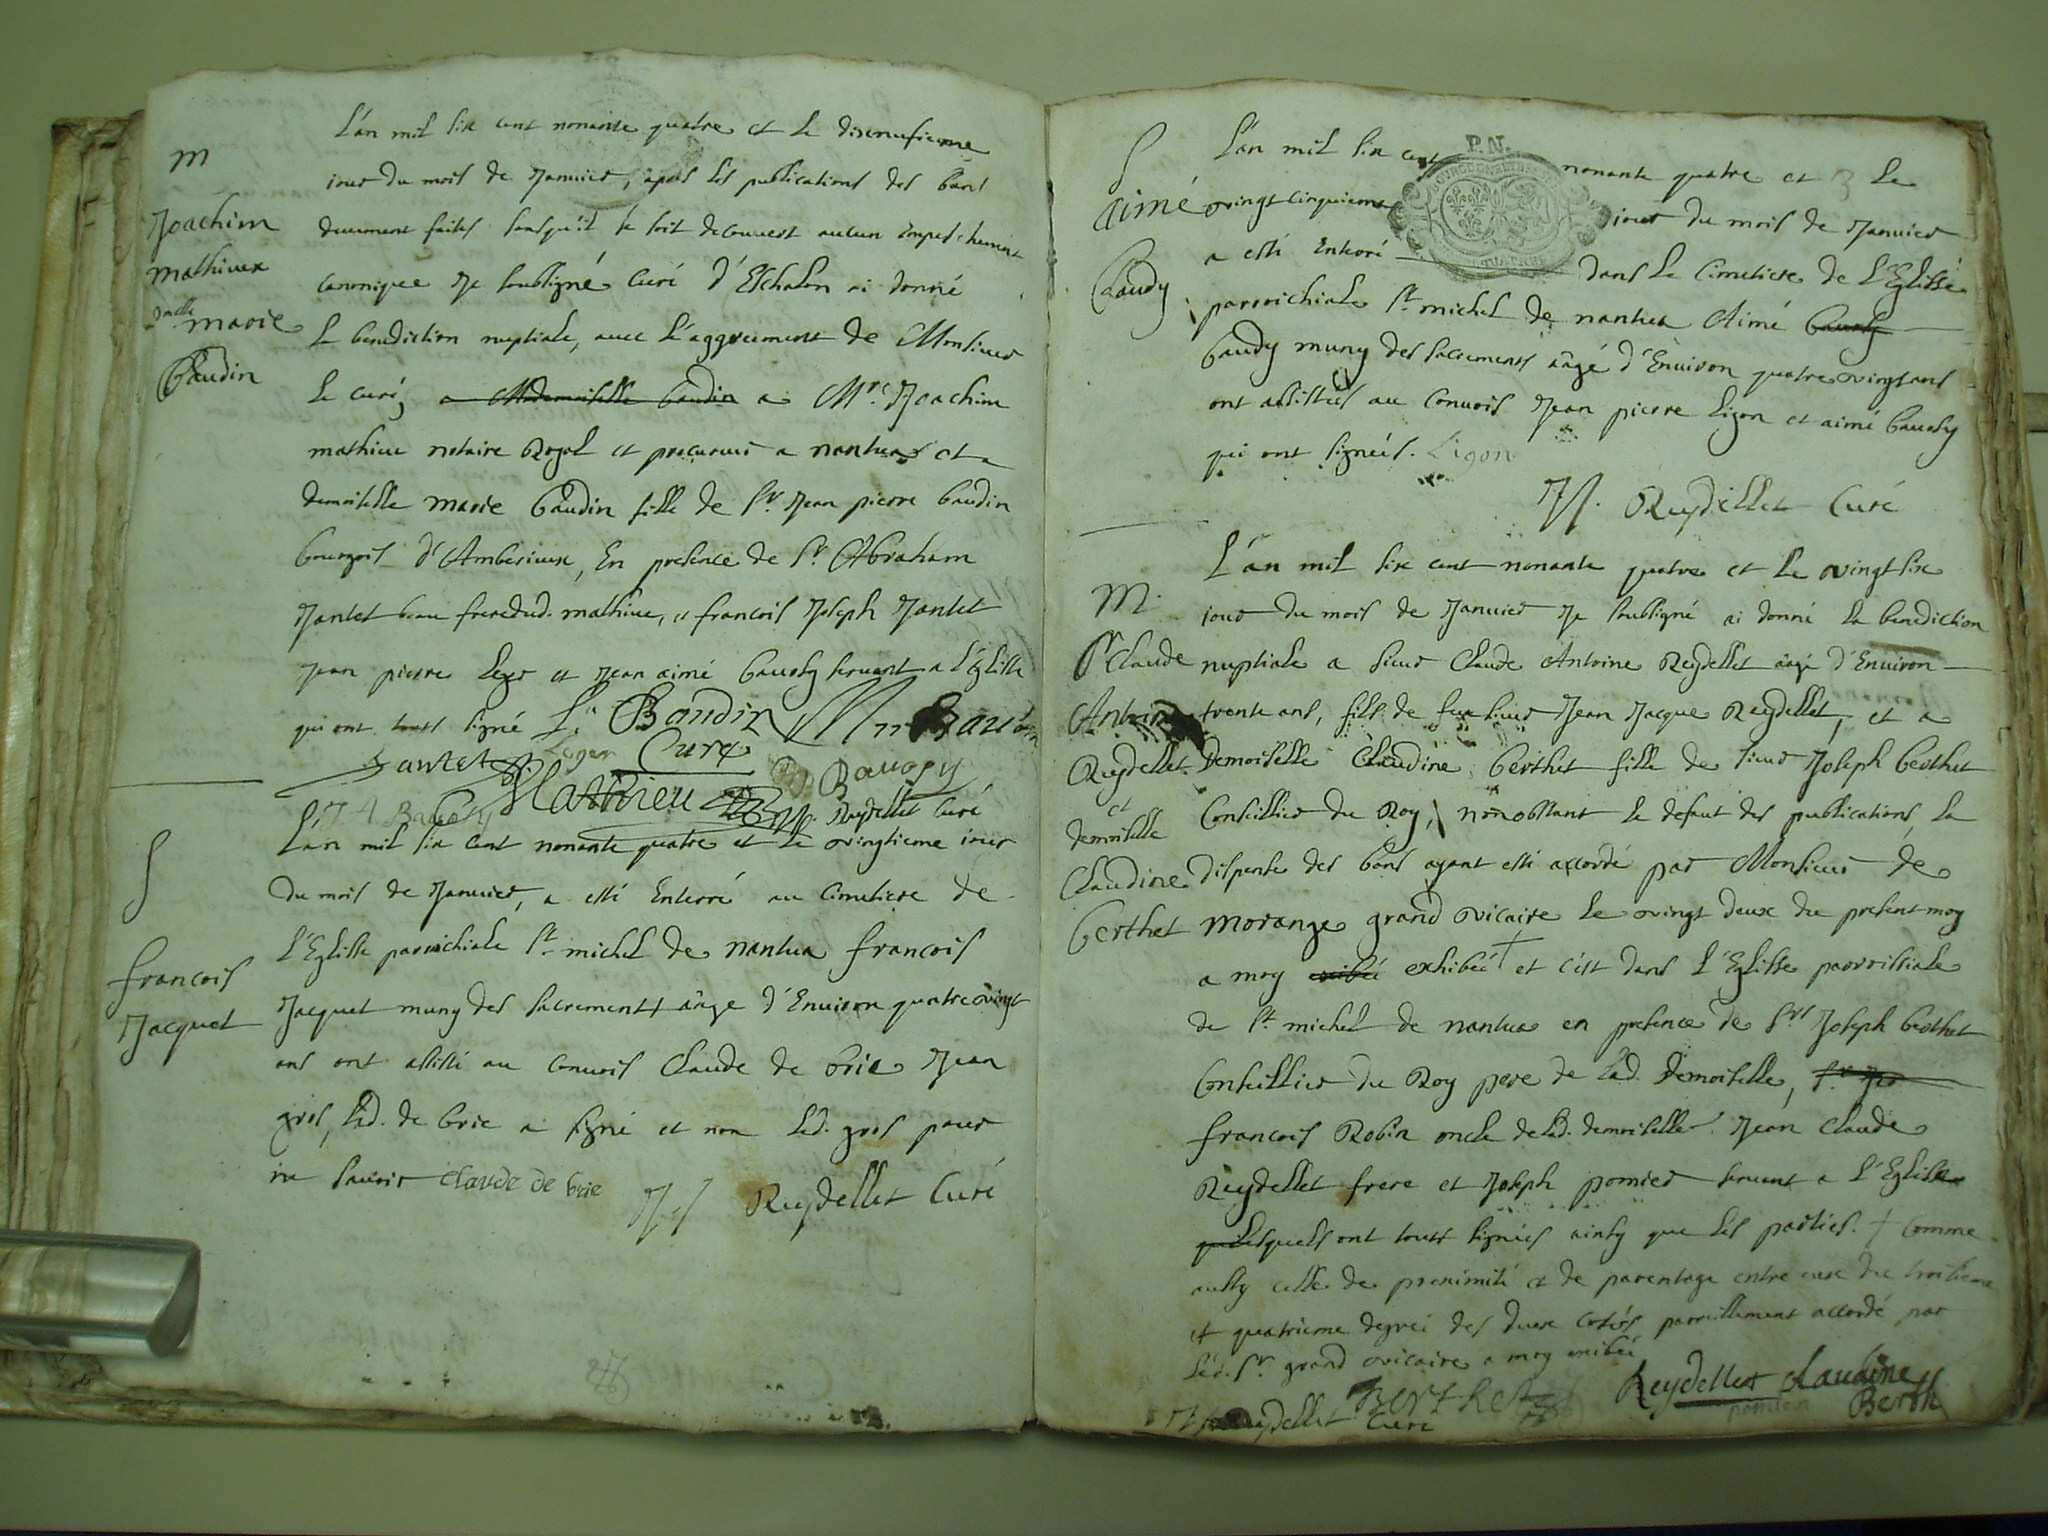 m
Joachim
mathieux
dmelle marie
Baudin
L'an mil six cent nonante quatre et le disneufieme
jour du mois de Janvier, apres les publications des bans
deuement faites sans qu'il se soit decouvert aucun empeschement
canonique Je soubsigné Curé d'Eschalon ai donné
l benediction nuptiale, avec l'aggreement de Monsieur
le curé, a Mademoiselle Baudin a Mre Joachim
mathieu notaire Royal et procureur a nantua et a
demoiselle marie Baudin fille de Sr Jean pierre Baudin
bourgois d'Amberieux, En presence de Sr Abraham
Jantet beau frere dud. mathieu, et francois Joseph Jantet
Jean pierre et Jean aimé Bavosy servant a l'Eglisse
qui ont touts signé Baudin
Jantet Curé
Mathieu Bavosy
Reydellet Curé
S
francois
Jacquet
L'an mil six cent nonante quatre et le vingtieme jour
du mois de Janvier, a esté Enterré au Cimetiere de
L'Eglisse parroichiale St michel de nantua francois
Jacquet muny des sacrements aâge d'Environ quatre vingt
ans ont assisté au Convois Claude de brie Jean
gros, led. de brie a signé et non led. gros pour
ne savoir Claude de brie
Reydellet Curé
S
Aimé
Baudy
P.N.
L'an mil six cent nonante quatre et le
vingt cinquieme jour du mois de Janvier
a esté Enterré dans le Cimetiere de L'Eglisse
parroichiale St michel de nantua Aimé
baudy muny des sacrements aâgé d'Environ quatre vingt ans
ont assistés au Convois Jean pierre ligon et aimé bavosy
qui ont signés. Ligon
Reydellet Curé
M.
Sr Claude
Antoine
Reydellet
et
demoiselle
Claudine
Berthet
L'an mil six cent nonante quatre et le vingt six
jour du mois de Janvier Je soubsigné ai donné la benediction
nuptiale a sieur Claude Antoine Reydellet aâgé d'Environ
trente ans, fils de feu sieur Jean Jacque Reydellet, et a
Demoiselle Claudine Berthet fille de sieur Joseph Berthet
Conseillier du Roy, nonobstant le defaut des publications, la
dispense des bans ayant esté accordé par Monsieur de
morange grand vicaire le vingt deux du present moy
a moy exibée exhibée † et c'est dans l'Eglisse parroissiale
de St michel de nantua en presence de Srs Joseph Berthet
Conseillier du Roy pere de lad. Demoiselle,
francois Robin oncle de lad. demoiselle Jean Claude
Reydellet frere et Joseph pomier servant a l'Eglisse
lesquels ont touts signés ainsy que les parties. † Comme
aussy celle de proximité et de parentage entre eux du troisieme
et quatrieme degréi des deux cotés pareillement accordé par
led. Sr grand vicaire a moy exibée
Reydellet Curé Berthet Reydellet Claudine
pomier Berthet